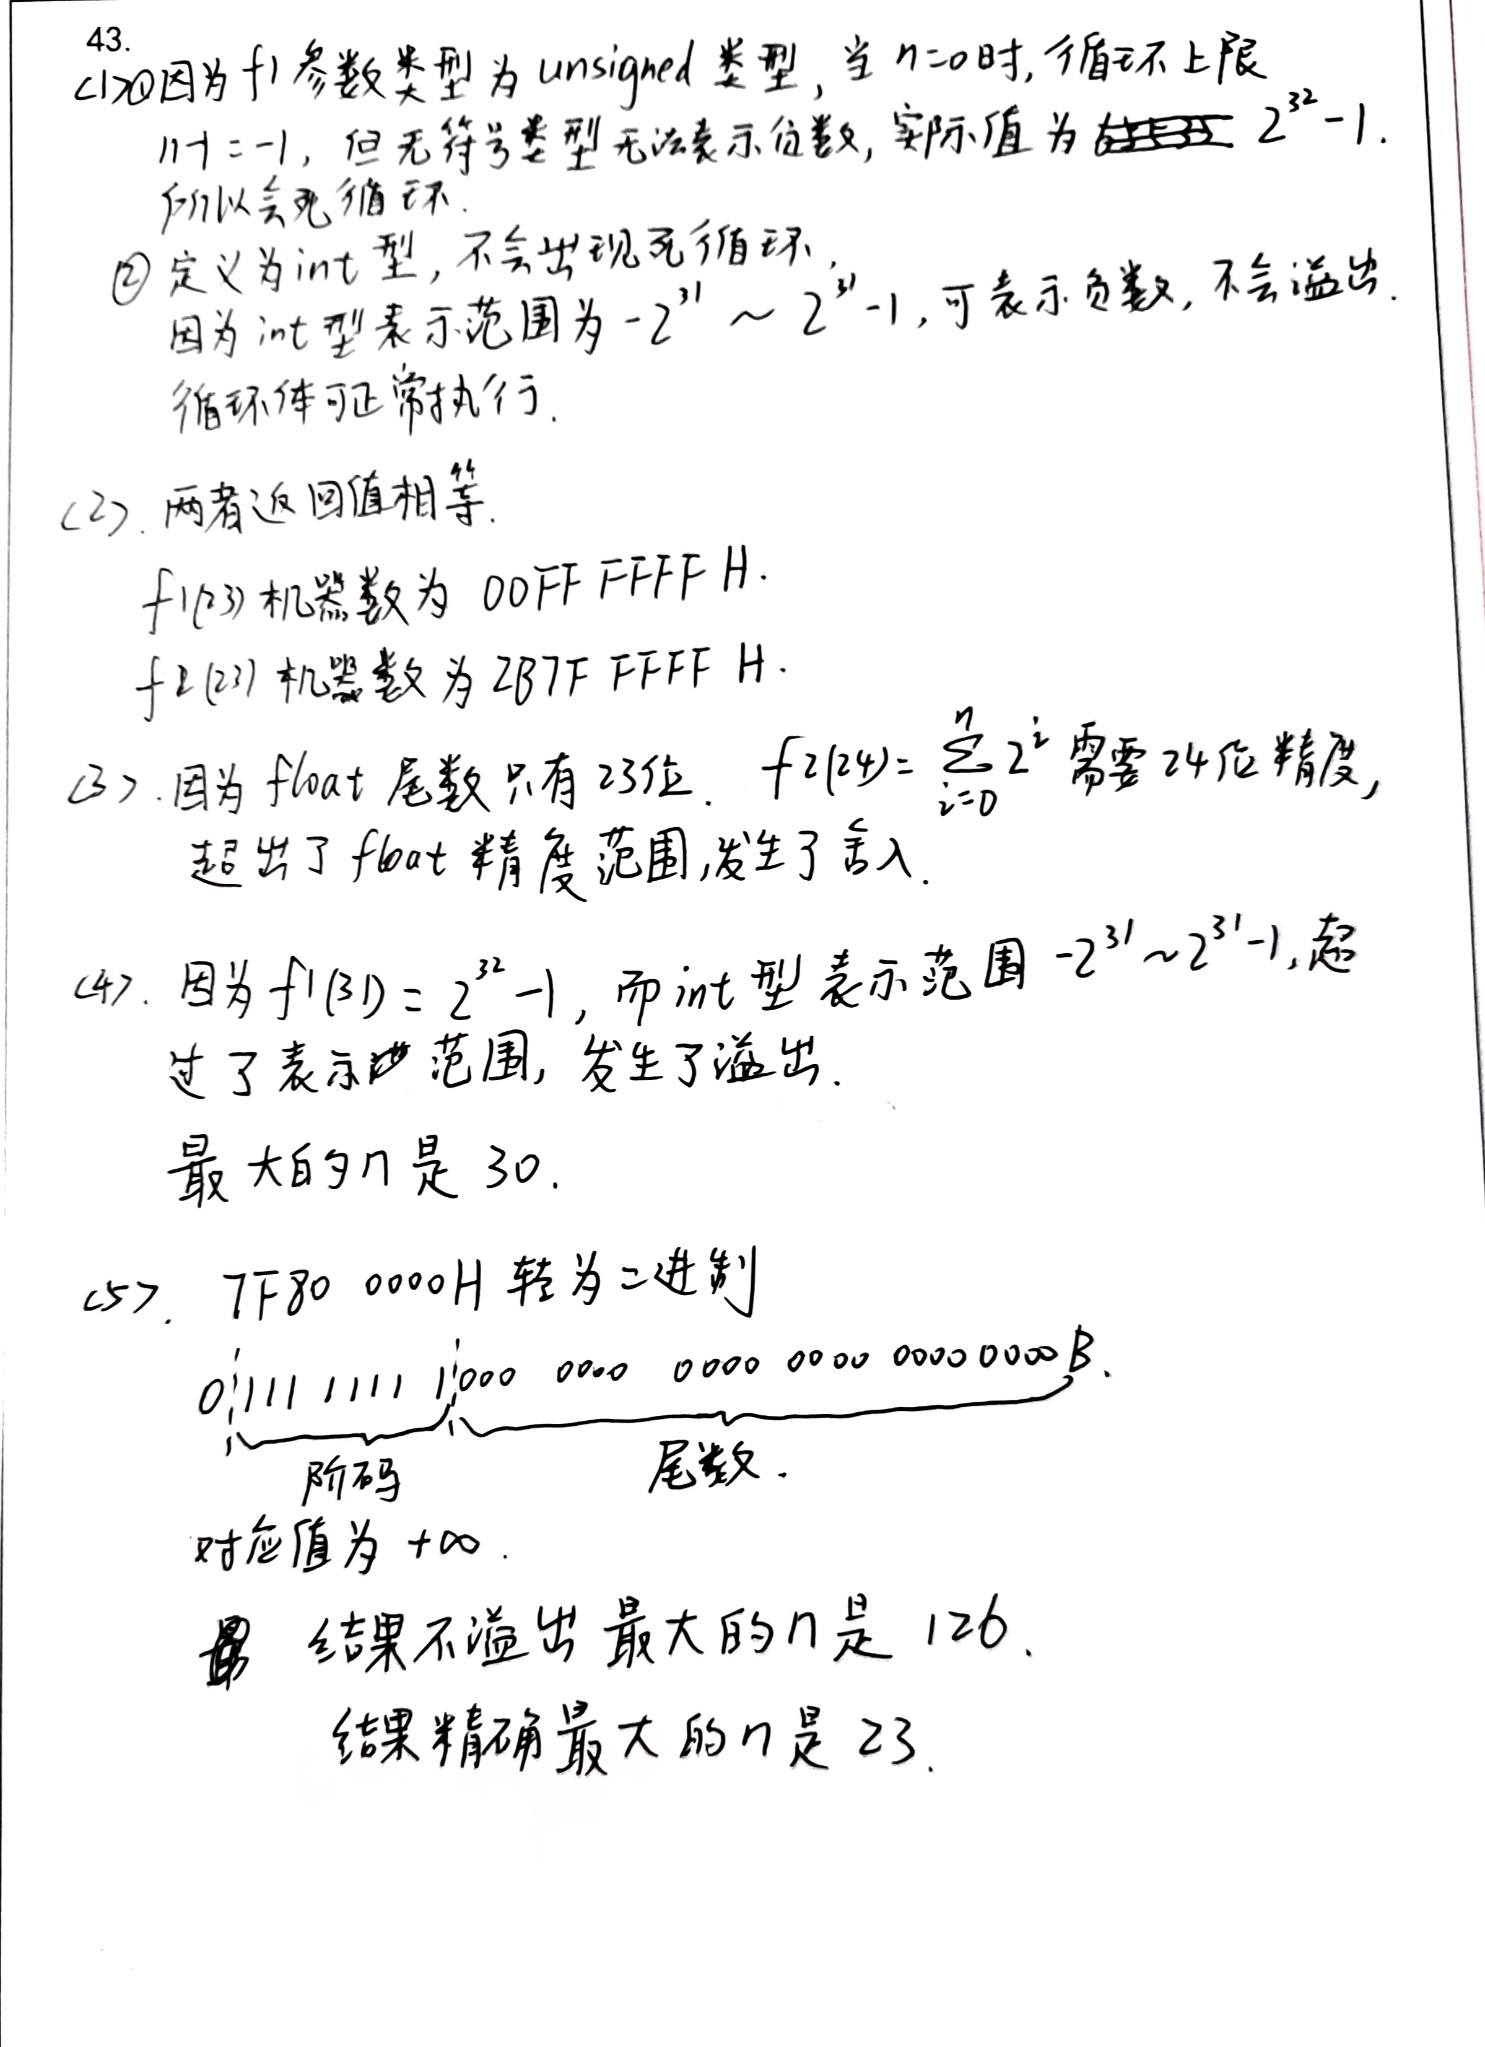 43.
(1)①因为f1参数类型为unsigned类型,当n=0时,循环上限
n-1=-1,但无符号类型无法表示负数,实际值为 2^32-1.
所以会死循环.
②定义为int型,不会出现死循环,
因为int型表示范围为-2^31~2^31-1,可表示负数,不会溢出.
循环体可正常执行.
(2).两者返回值相等.
f1(23)机器数为 00FF FFFF H.
f2(23)机器数为 2B7F FFFF H.
(3).因为float尾数只有23位. f2(24)=∑_{i=0}^{n}2^i需要24位精度,
超出了float精度范围,发生了舍入.
(4).因为f1(31)=2^32-1,而int型表示范围-2^31~2^31-1,超
过了表示范围,发生了溢出.
最大的n是30.
(5). 7F80 0000H转为二进制
0 111 1111 1 000 0000 0000 0000 0000 0000B.
阶码 尾数.
对应值为+∞.
结果不溢出最大的n是126.
结果精确最大的n是23.